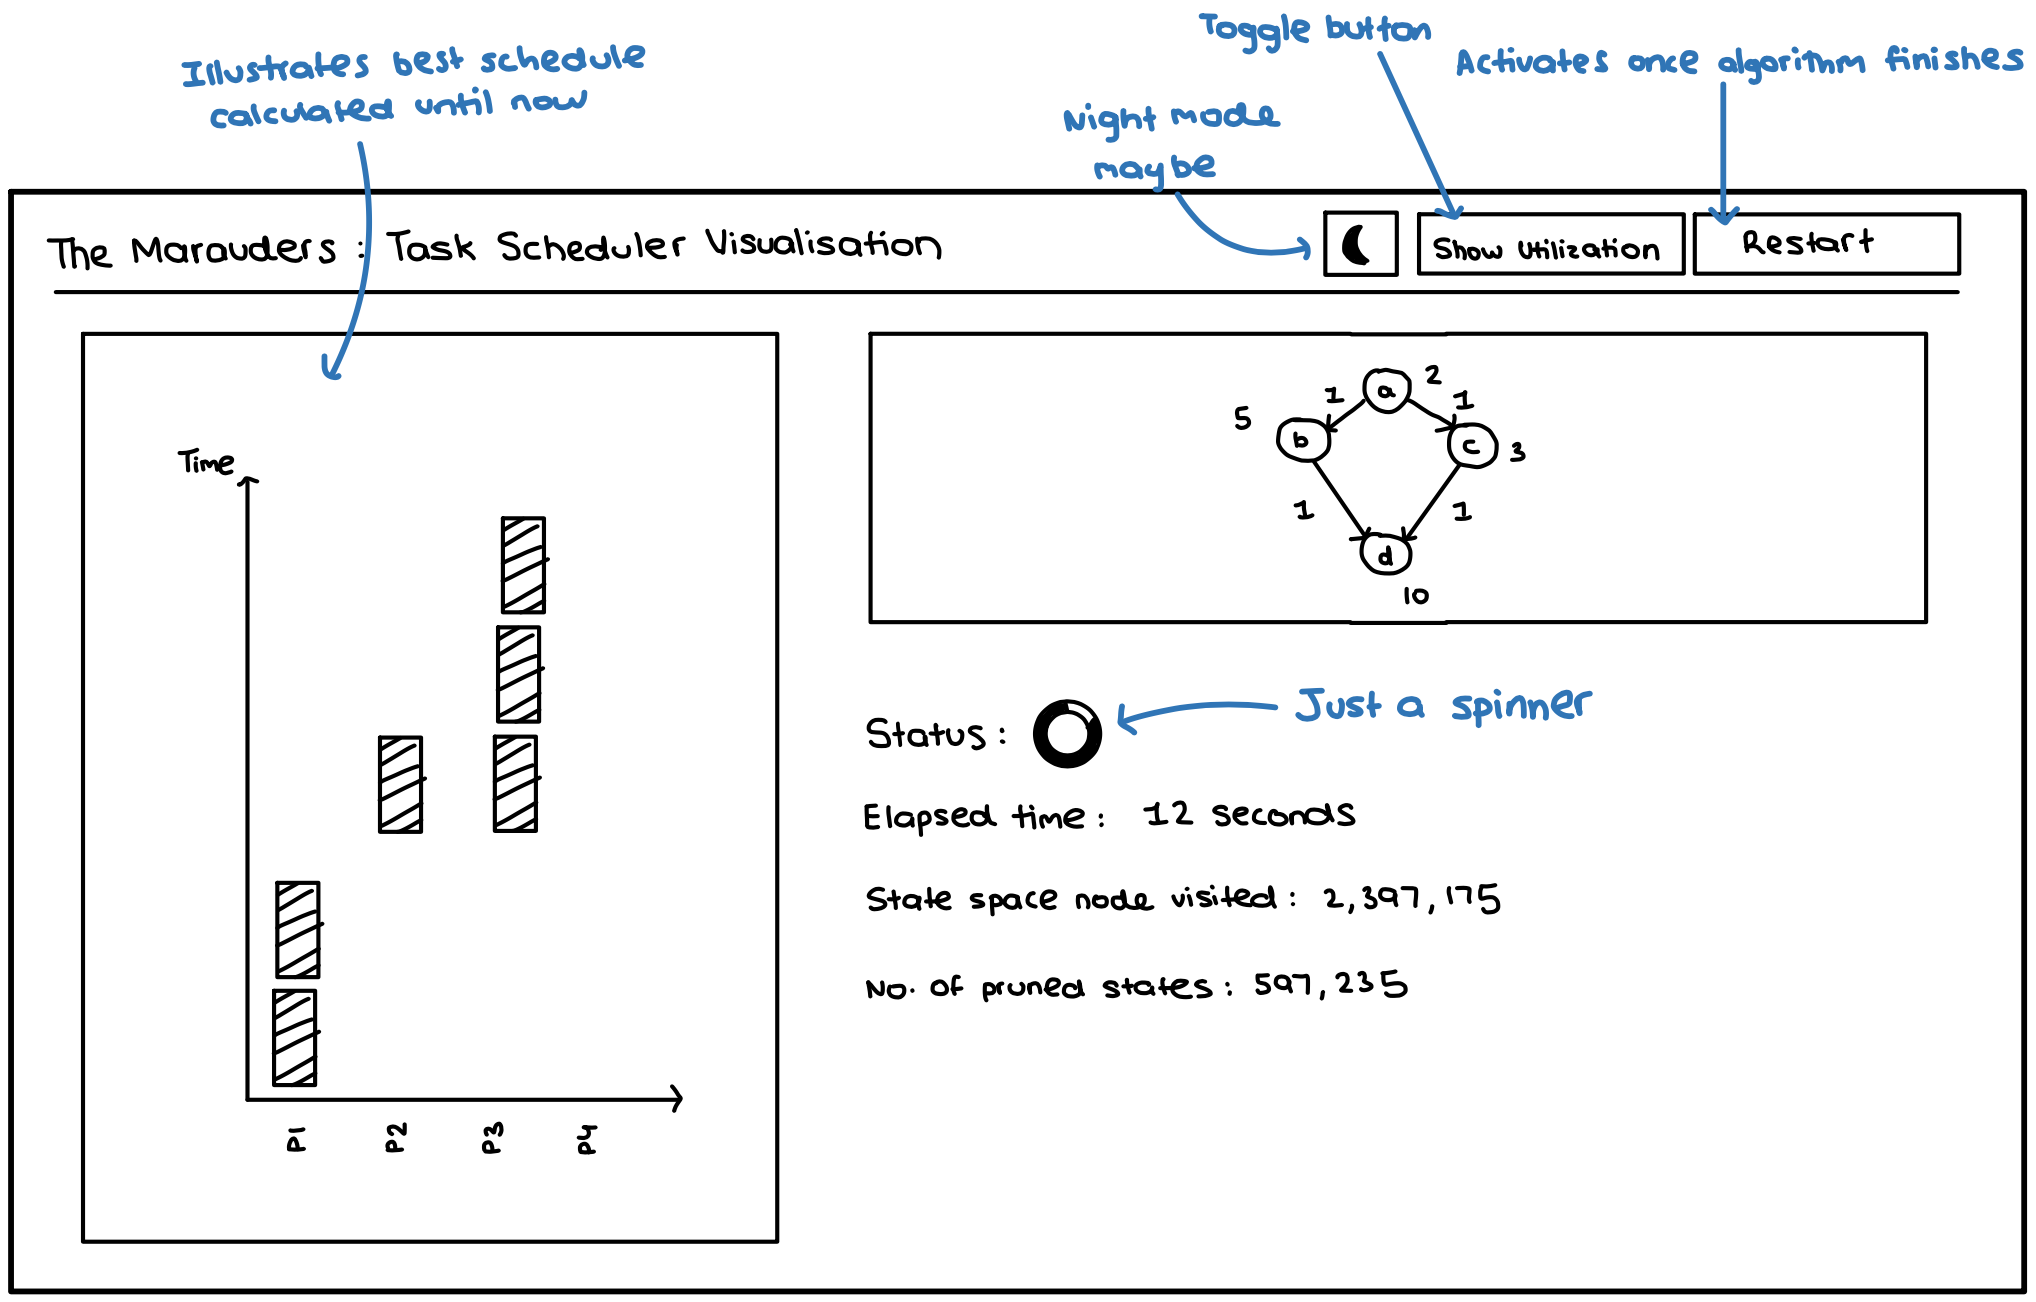 Illustrates best schedule
calculated until now
Toggle button
Activates once algorithm finishes
Night mode
maybe
The Marauders : Task Scheduler Visualisation
Show Utilization
Restart
Time
P1
P2
P3
P4
a
2
1
1
5
b
c
3
1
1
d
10
Status :
Just a spinner
Elapsed time : 12 seconds
State space node visited : 2,397,175
No. of pruned states : 597,235